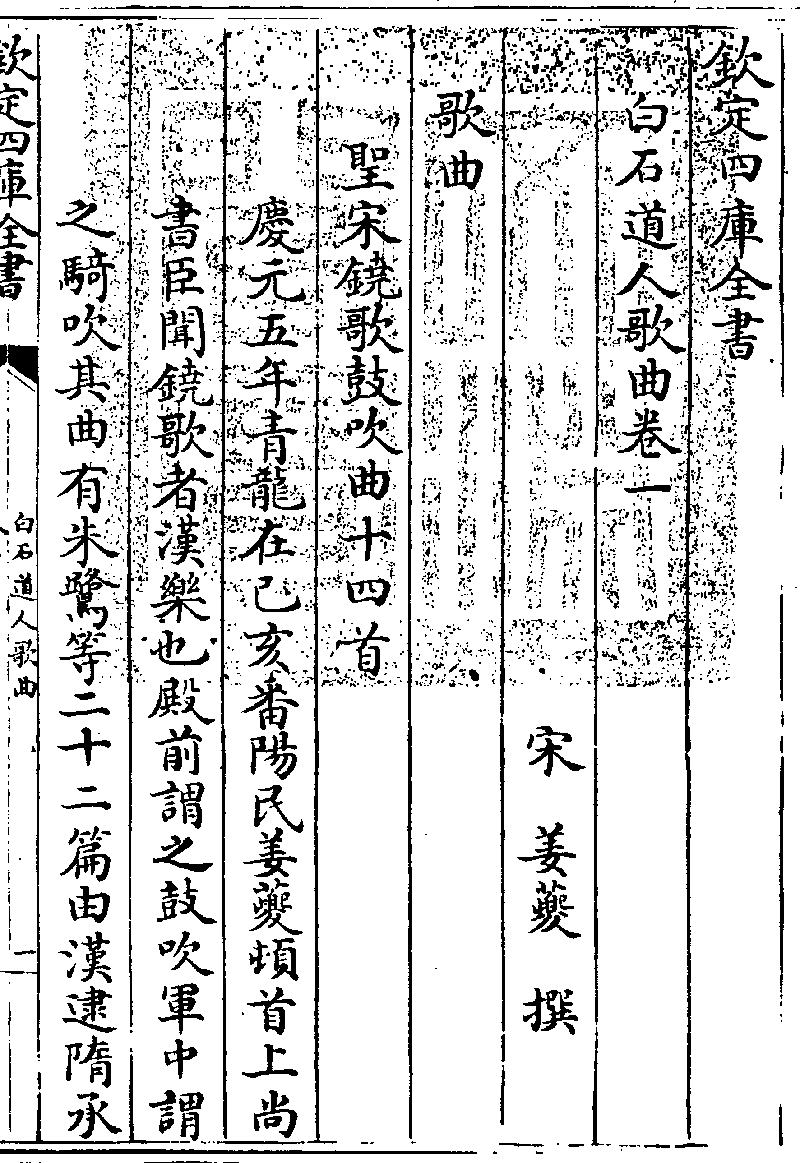 欽定四庫全書
白石道人歌曲卷一
宋 姜夔 撰
歌曲
聖宋鐃歌鼓吹曲十四首
慶元五年青龍在己亥番陽民姜夔頓首上尚
書臣聞鐃歌者漢樂也殿前謂之鼓吹軍中謂
之騎吹其曲有朱鷺等二十二篇由漢逮隋承
欽定四庫全書
白石道人歌曲
一